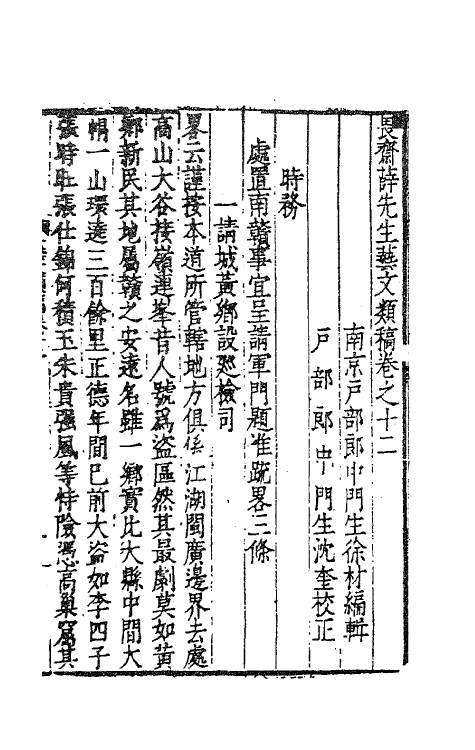 畏齋薛先生藝文類稿卷之十二
南京戶部郎中門生徐材編輯
戶部郎中門生沈奎校正
時務
處置南贛事宜呈請軍門題准疏畧三條
一請城黃鄉設廵檢司
畧云謹按本道所管轄地方俱係江湖閩廣邊界去處
高山大谷接嶺連峯昔人號爲盜區然其最劇莫如黃
鄉新民其地屬贛之安遠名雖一鄉實比大縣中間大
帽一山環遶三百餘里正德年間已前大盜如李四子
張時旺張仕錦何積玉朱貴强風等恃險憑高巢窟其